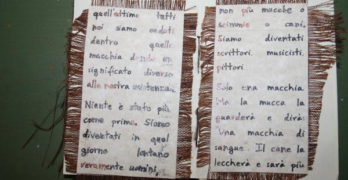 quell'ultimo tutti
noi siamo caduti
dentro quella
macchia dando un
significato diverso
alla nostra esistenza.
Niente è stato più
come prima. Siamo
diventati in quel
giorno lontano
veramente uomini,
non più mucche o
scimmie o cani.
Siamo diventati
scrittori, musicisti,
pittori.
Solo una macchia.
Ma la mucca la
guarderà e dirà:
Una macchia di
sangue. Il cane la
leccherà e sarà più